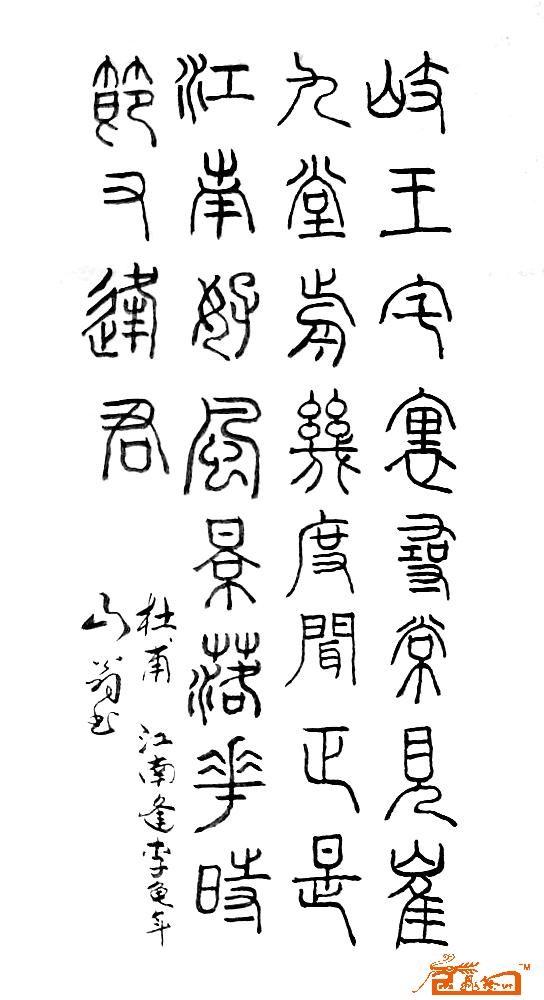 岐王宅裏尋常見崔
九堂前幾度聞正是
江南好風景落花時
節又逢君
杜甫 江南逢李龟年
山翁书